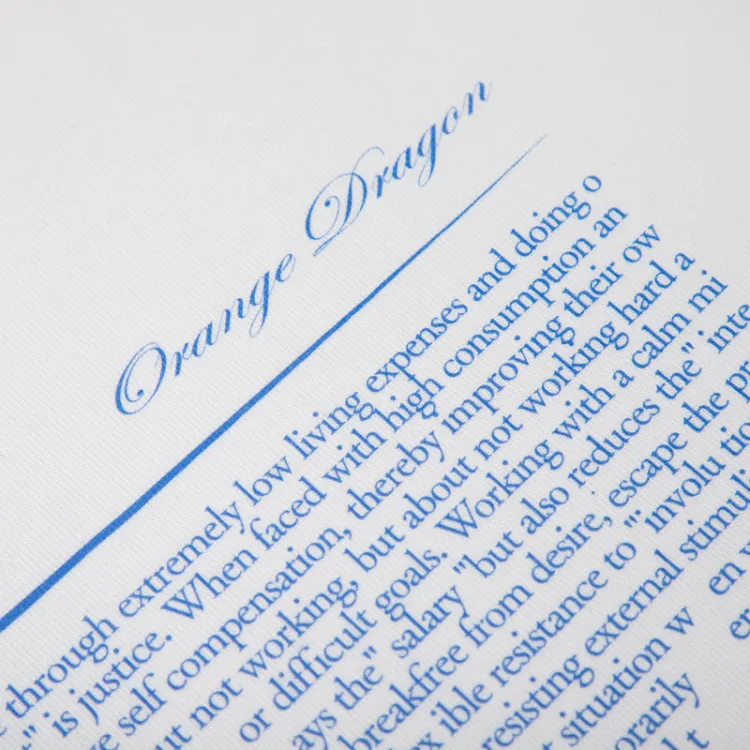 Orange Dragon
through extremely low living expenses and doing o
" is justice. When faced with high consumption an
self compensation, thereby improving their ow
not working, but about not working hard a
or difficult goals. Working with a calm mi
the" salary "but also reduces the" inte
breakfree from desire, escape the pr
ible resistance to "involu tio
resisting external stimuli
situation w
en
orarily